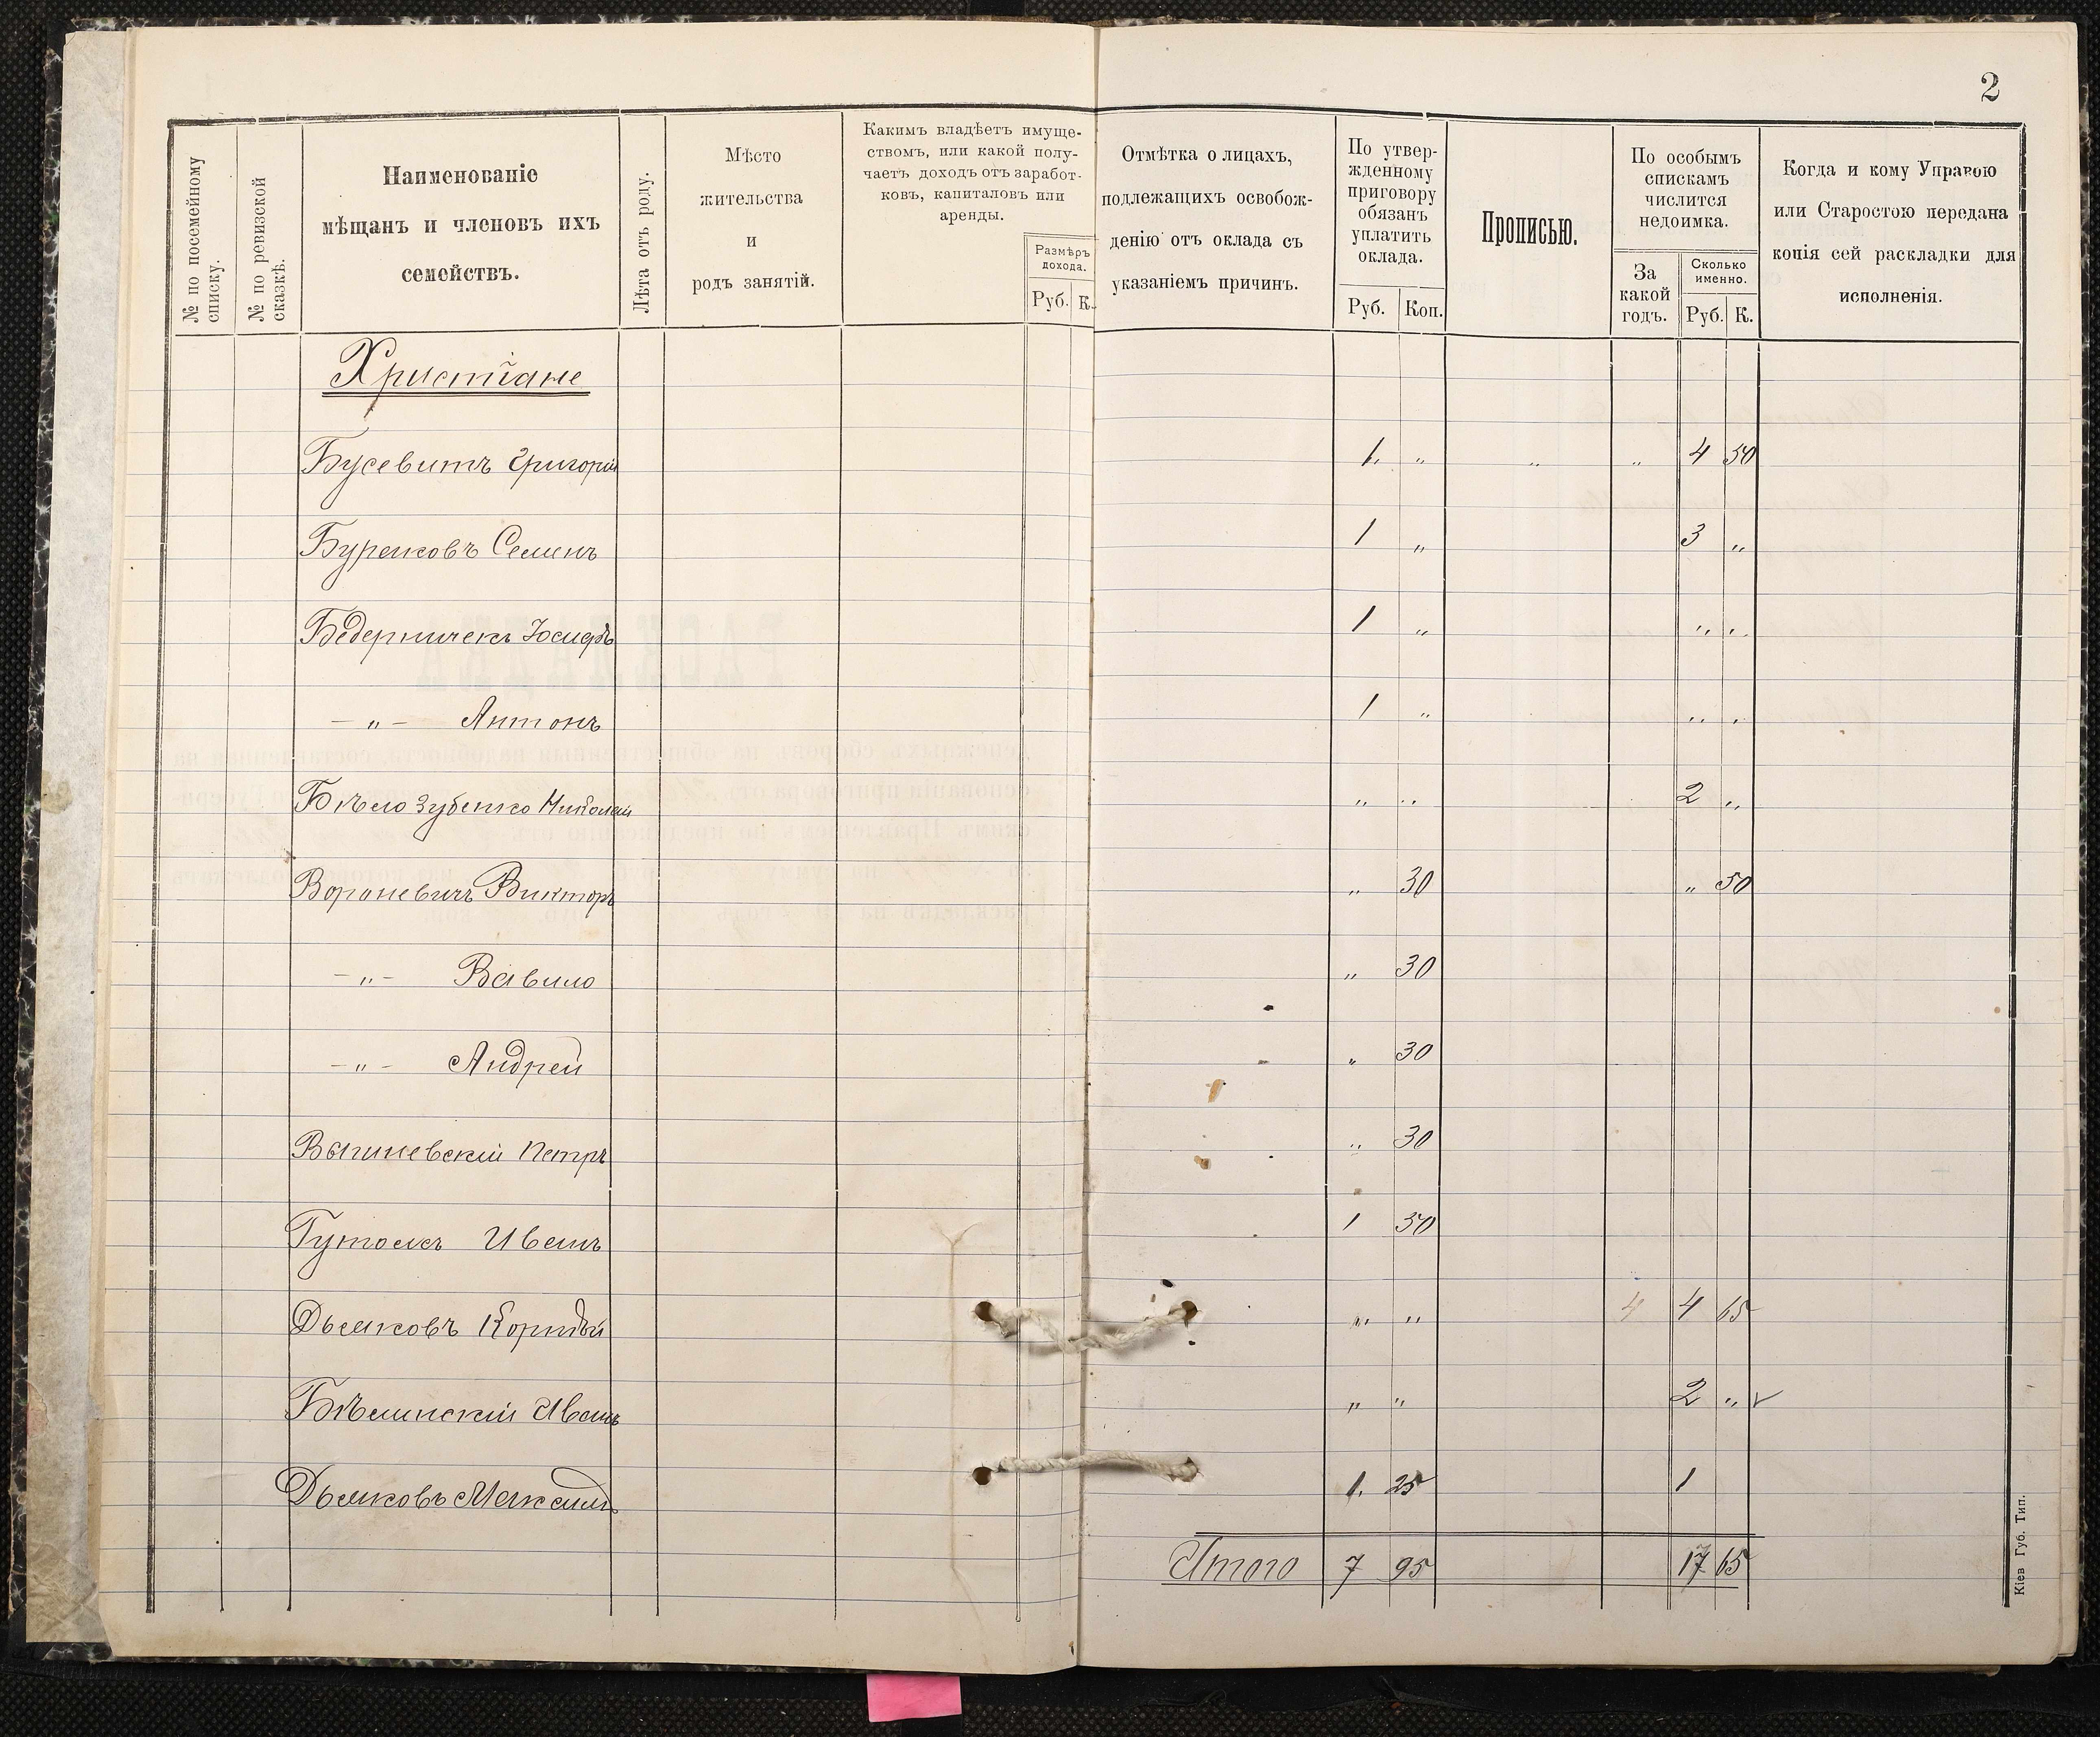 2
№ по посемейному списку.
№ по ревизской сказкѣ.
Наименованіе
мѣщанъ и членовъ ихъ
семействъ.
Лѣта отъ роду.
Мѣсто
жительства
и
родъ занятій.
Какимъ владѣетъ имуще-
ствомъ, или какой полу-
чаетъ доходъ отъ заработ-
ковъ, капиталовъ или
аренды.
Размѣръ
дохода.
Руб. К.
Отмѣтка о лицахъ,
подлежащихъ освобож-
денію отъ оклада съ
указаніемъ причинъ.
По утвер-
жденному
приговору
обязанъ
уплатить
оклада.
Руб. Коп.
Прописью.
По особымъ
спискамъ
числится
недоимка.
За
какой
годъ.
Сколько
именно.
Руб. К.
Когда и кому Управою
или Старостою передана
копія сей раскладки для
исполненія.
Христіане
Бусевитъ Григорій 1. „ „ „ 4 50
Буренковъ Семенъ 1 „ 3 „
Бедерничекъ Іосифъ 1 „ „ „
– „ – Антонъ 1 „ „ „
Бѣлозубенко Николай „ „ 2 „
Вороневичъ Викторъ „ 30 „ 50
– „ – Вавило „ 30
– „ – Андрей „ 30
Петръ „ 30
Иванъ 1 50
Дьяковъ Корнѣй „ „ 4 4 65
Бѣлинскій Иванъ „ „ 2 „ ✓
Дьяковъ Максимъ 1. 25 1
Итого 7 95 17 65
Кіев Губ. Тип.